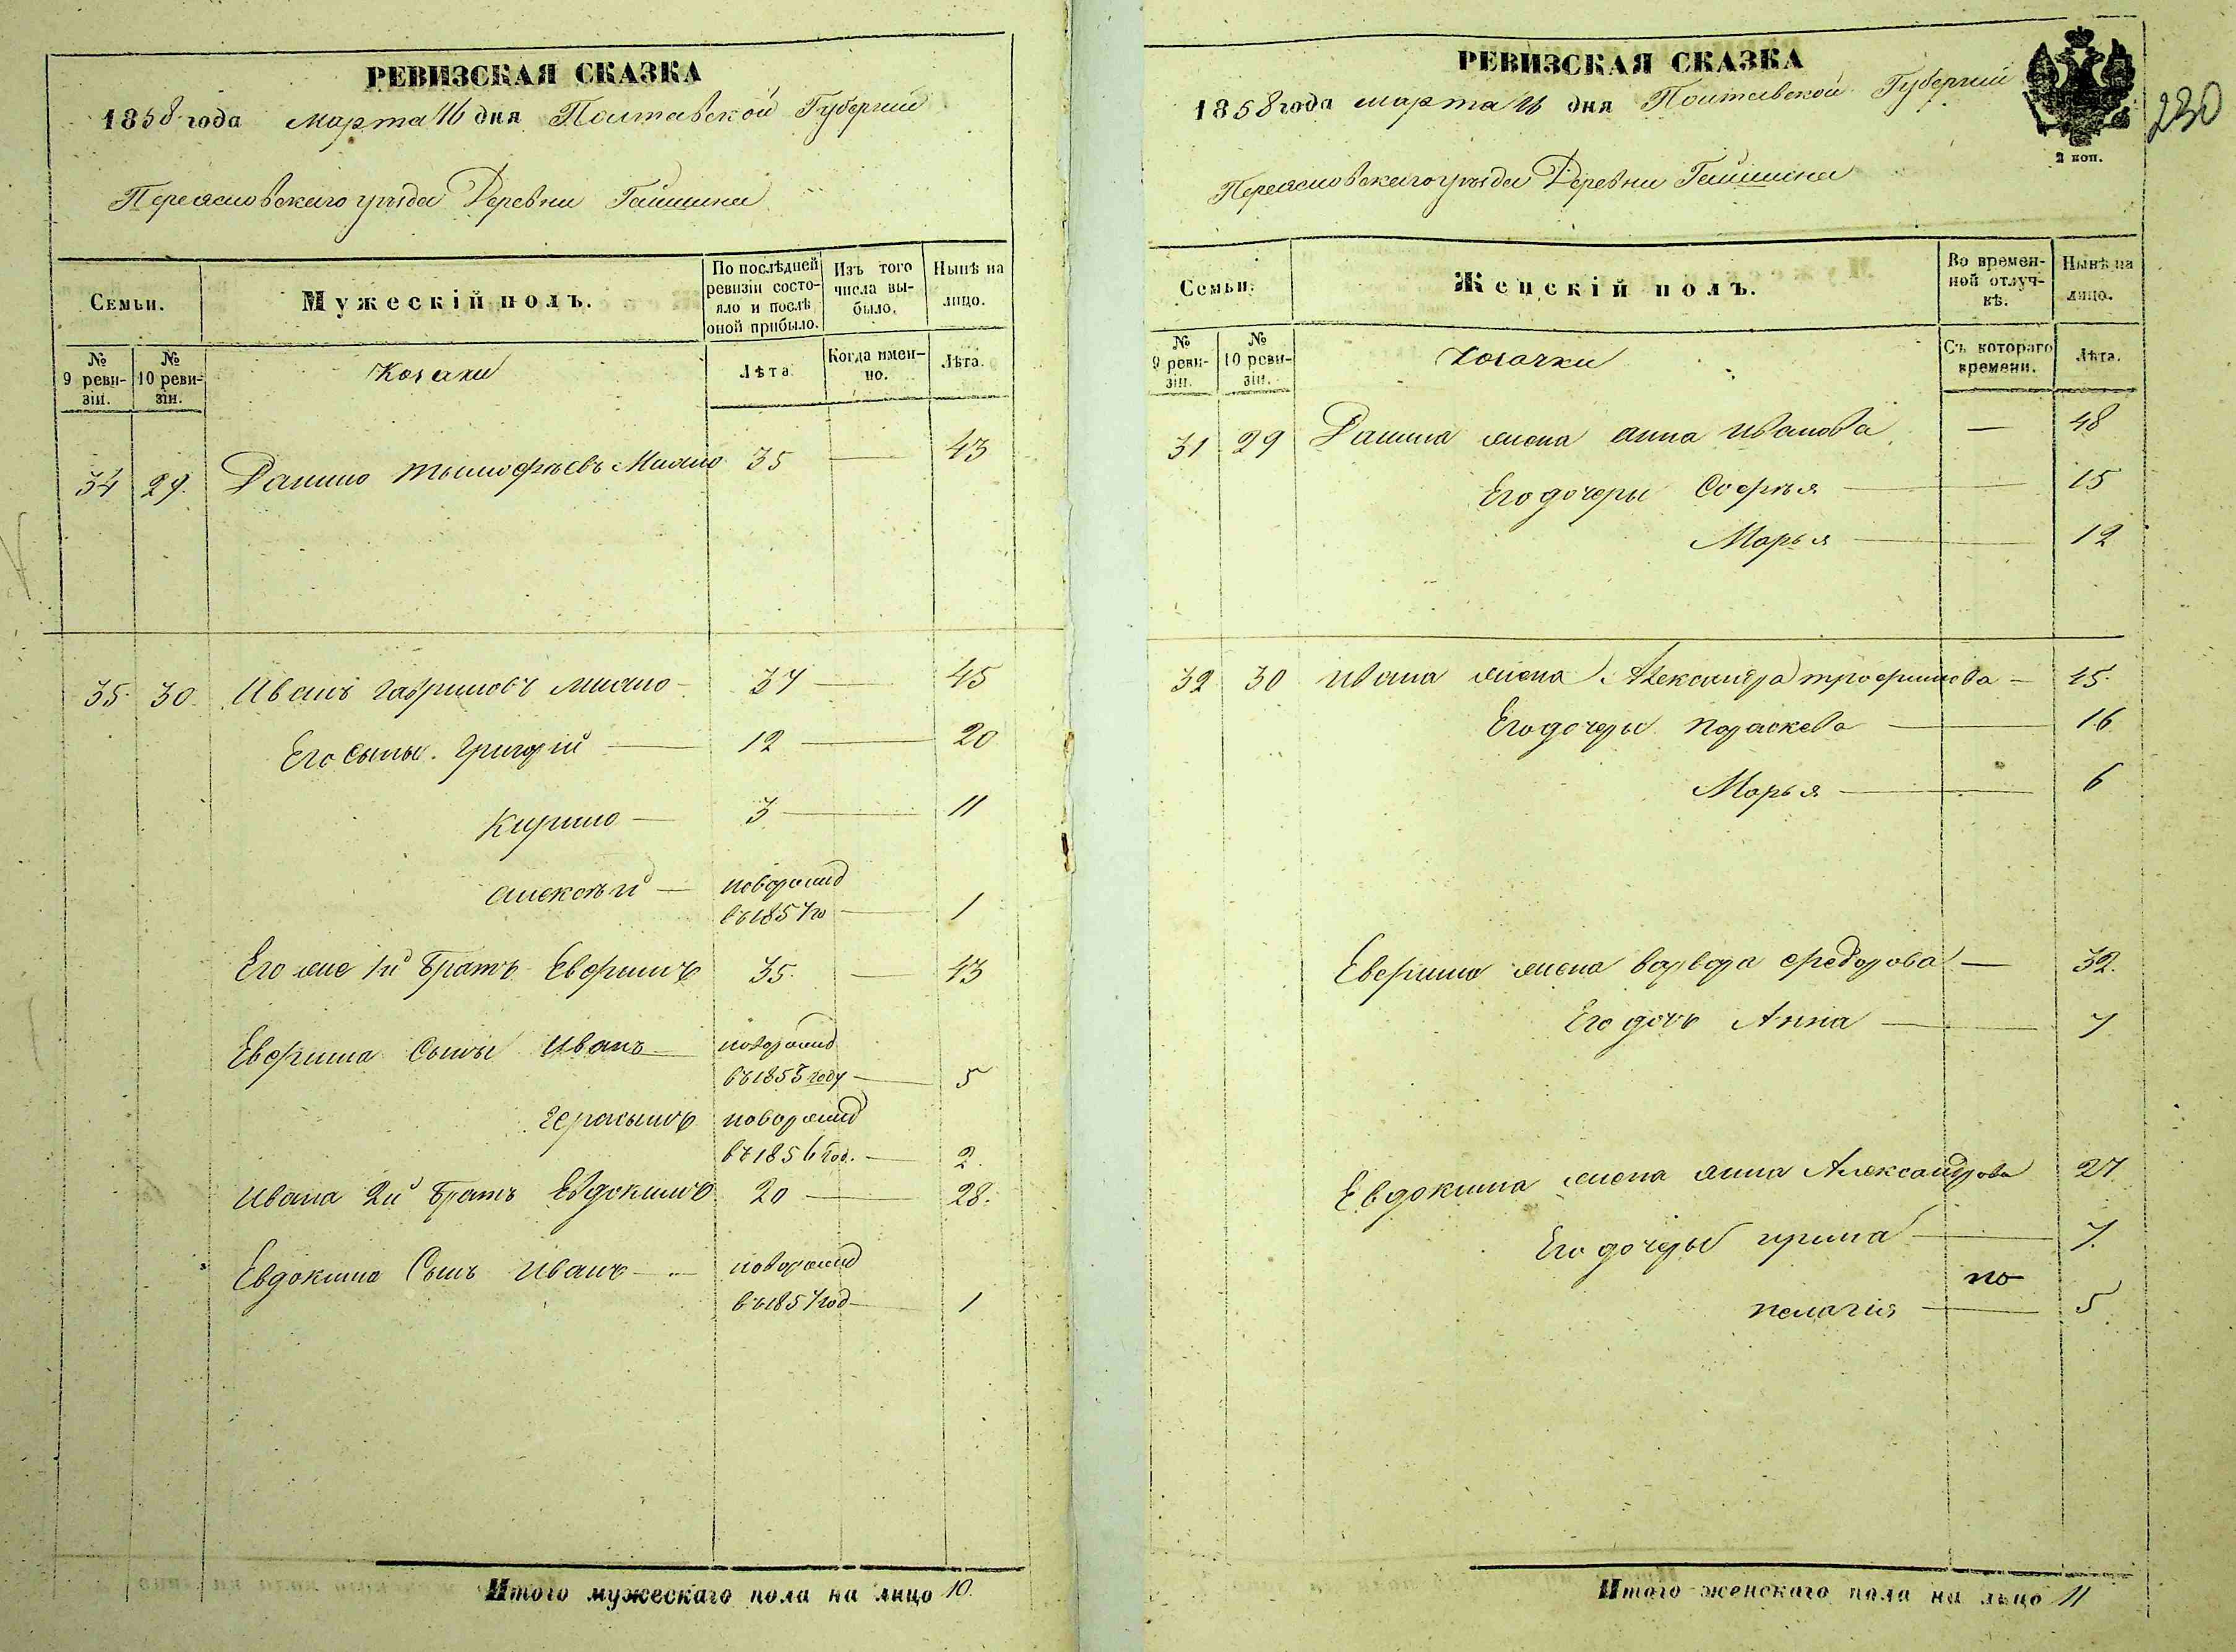 РЕВИЗСКАЯ СКАЗКА
1858 года марта 16 дня Полтавской Губернии
Переясловскаго уѣзда Деревни Гайшина
Семьи.
Мужескій полъ.
По послѣдней ревизіи состояло и послѣ оной прибыло.
Изъ того числа выбыло.
Нынѣ на лицо.
№ 9 ревизіи.
№ 10 ревизіи.
Козаки
Лѣта.
Когда именно.
Лѣта.
34 29. Данило Тымофѣевъ 35 — 43
35. 30. Иванъ Гавриловъ 37 — 45
Его сыны. Григорій — 12 — 20
Кирило — 3 — 11
Алексѣй — новорожд
въ 1857 го — 1
Его же 1й братъ Евфимъ 35. — 43
Евфима сыны Иванъ новорожд
въ 1853 году — 5
Герасымъ новорожд
въ 1856 год. — 2.
Ивана 2й братъ Евдокимъ 20 — 28.
Евдокима Сынъ Иванъ — новорожд
въ 1857 год — 1
Итого мужескаго пола на лицо 10.
РЕВИЗСКАЯ СКАЗКА
1858 года марта 16 дня Полтавской Губернии
2 коп.
230
Переясловскаго уѣзда Деревни Гайшина
Семьи.
Женскій полъ.
Во временной отлучкѣ.
Нынѣ на лицо.
№ 9 ревизіи.
№ 10 ревизіи.
Козачки
Съ котораго времени.
Лѣта.
31 29 Данила жена Анна Иванова — 48
Его дочеры Софѣя — 15
Марья — 12
32 30 Ивана жена Александра Трофимова — 45.
Его дочеры Параскева — 16
Марья — 6
Евфима жена Варвара Федорова — 32.
Его дочь Анна — 7
Евдокима жена Анна Александрова 27
Его дочеры Ирина — 7.
по
Пелагія — 5
Итого женскаго пола на лицо 11